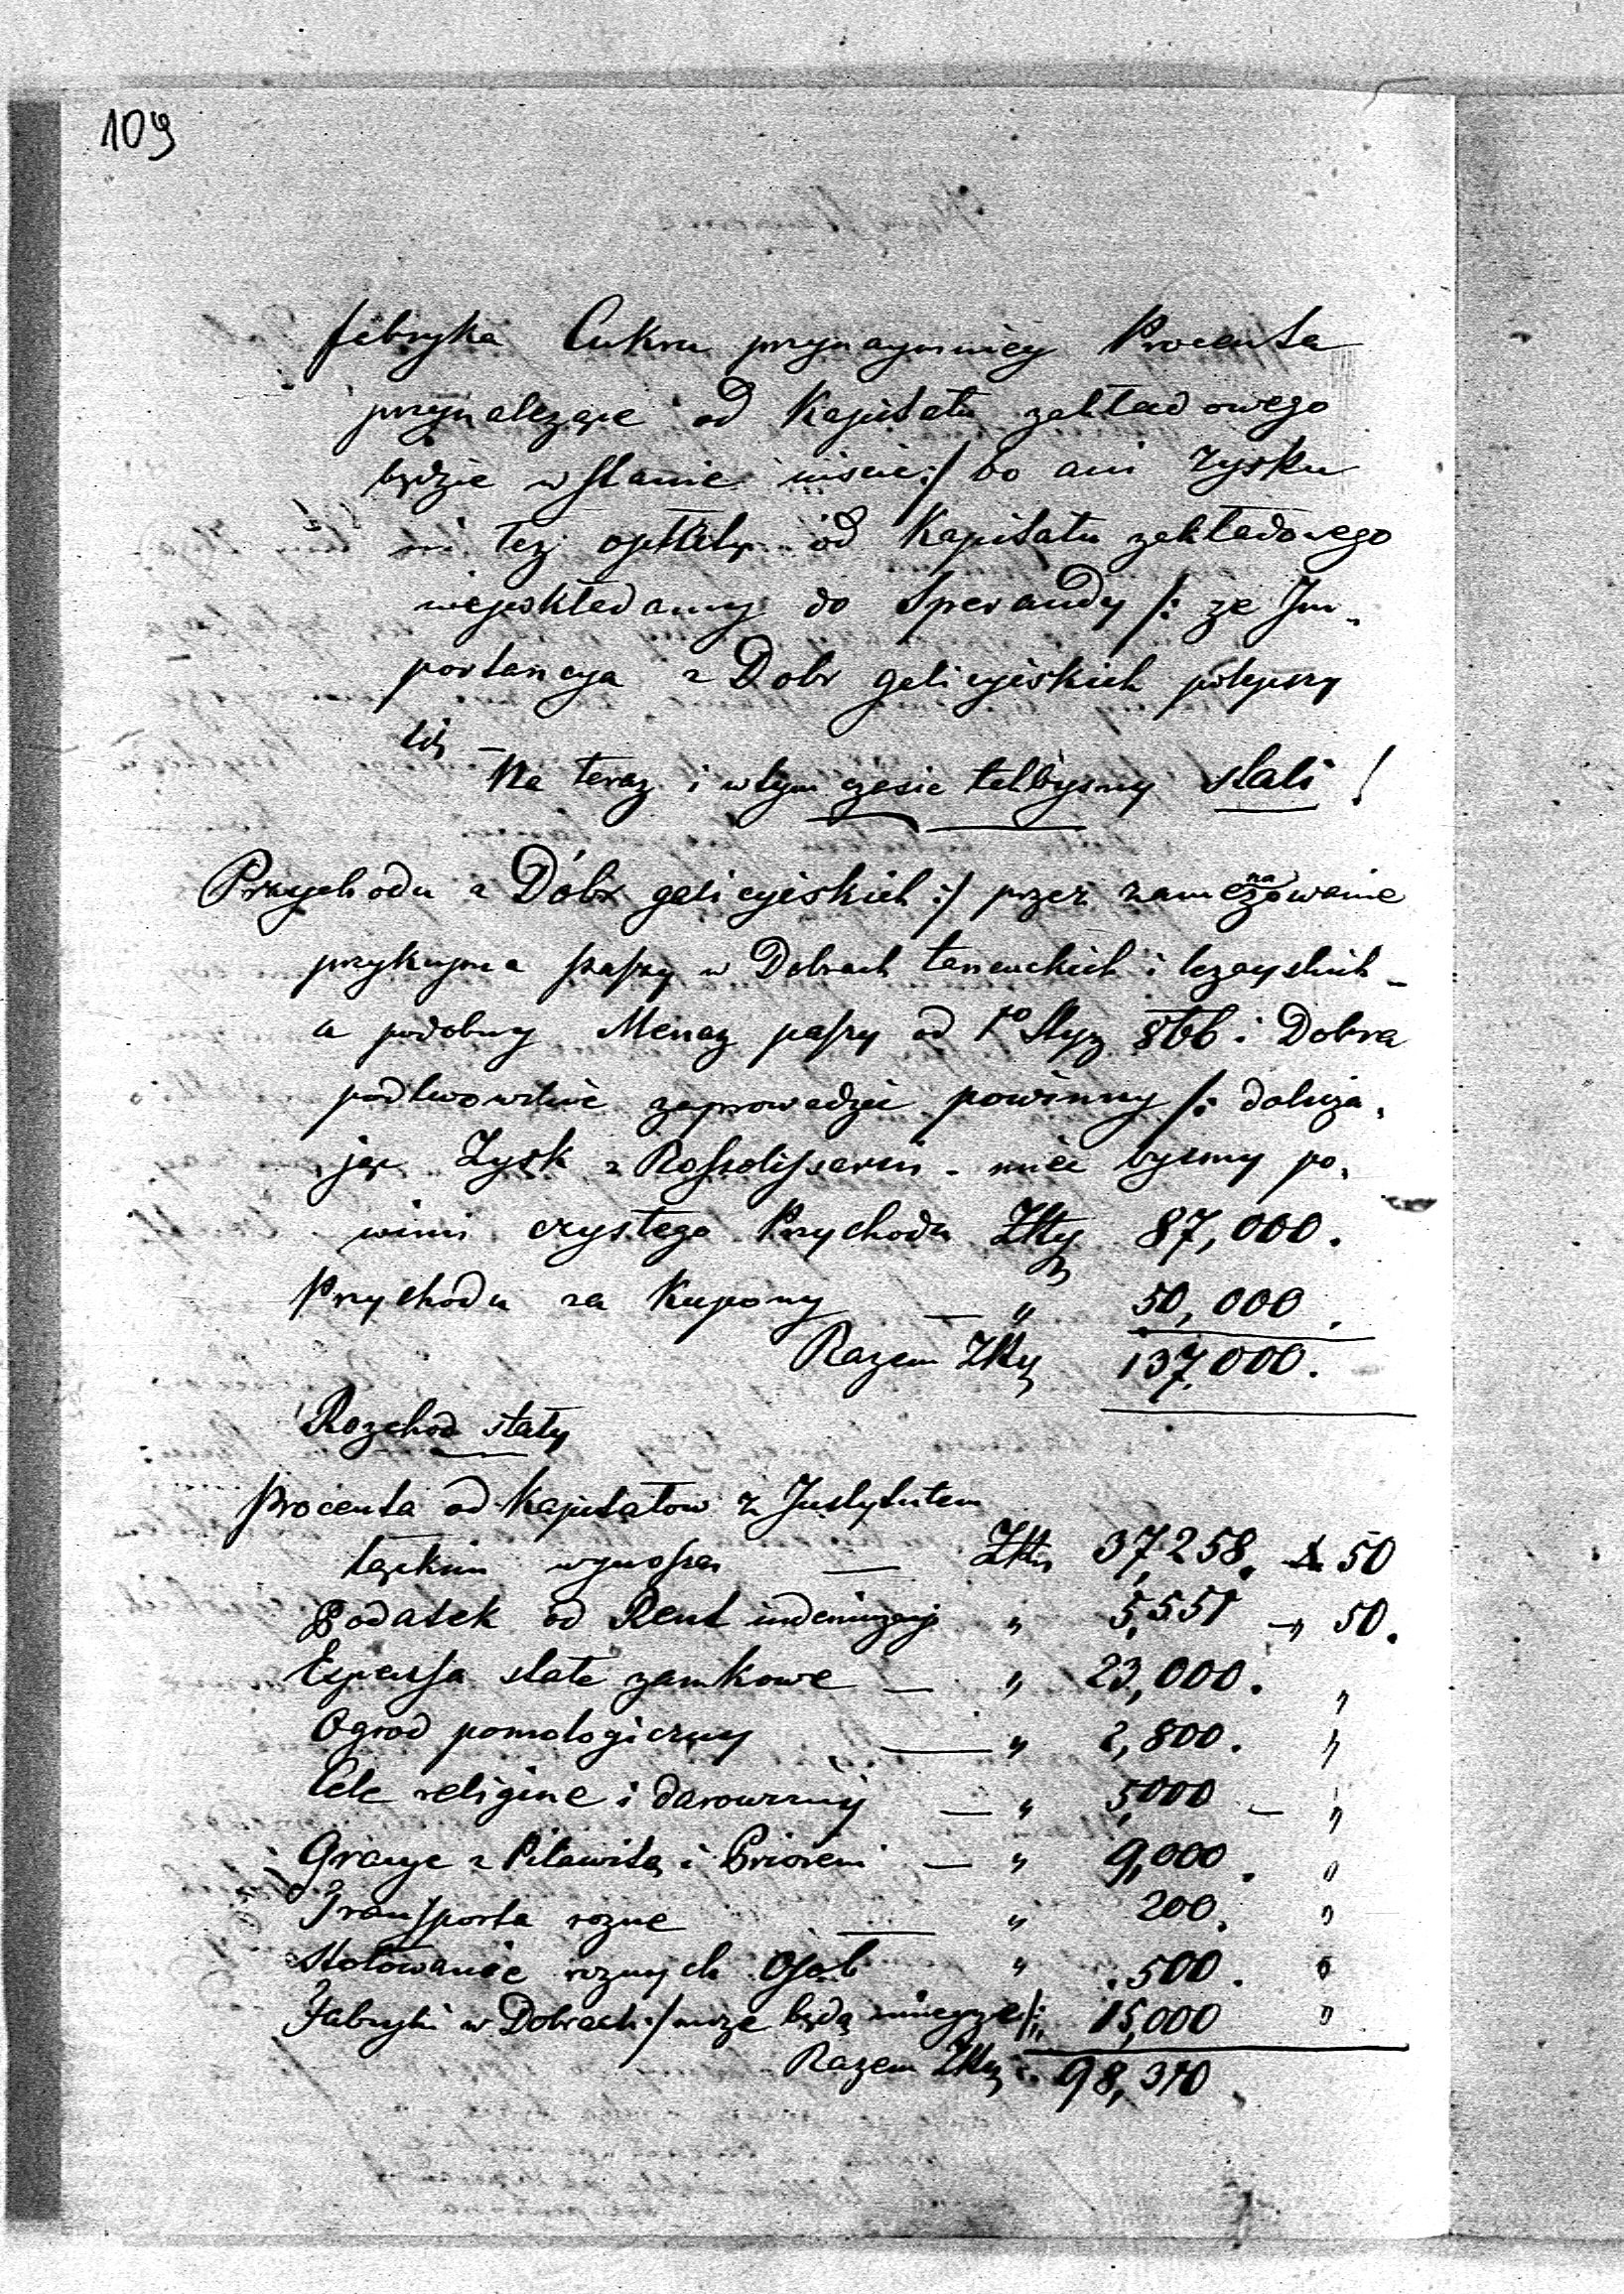 109
fabryka Cukru przynaymniey Procenta
przynależące od Kapitału zakładowego
będzie w stanie iiścić :/ bo ani Zysku
ni też opłaty od Kapitału zakładowego
niewkładamy do Sperandy /: ze Im-
portancya z Dobr galicyiskich polepszy
się —
Na teraz i w tym czasie takbysmy stali !
Przychodu z Dóbr galicyiskich :/ przez
przykupna paszy w Dobrach łancuckich i leżayskich -
a podobny Menaz paszy od 1º Stycz 866 i Dobra
podlwowskie zaprowadzić powinny /: dolicza-
jąc Zysk z Rossolisarni - mieć bysmy po-
winni czystego Przychodu Złty 87,000.
Przychodu za Kupony — " 50,000.
Razem Złty 137,000.
Rozchod stały
Procenta od Kapitałow z Instytutem
wynoszą — Złty 37,258. 50
Podatek od Rent indemnizacyi " 5,551 " 50.
Expensa stałe zamkowe — " 23,000. "
Ogrod pomologiczny — " 2,800. "
Cele religine i darowizny — " 5,000 — "
Gracye z Pilawitą i Priorem — " 9,000. "
Transporta rozne — " 200. "
Stołowanie roznych Osob " 500. "
Fabryki w Dobrach :/ może będą mnieysze /: " 15,000 "
Razem Złty 98,310